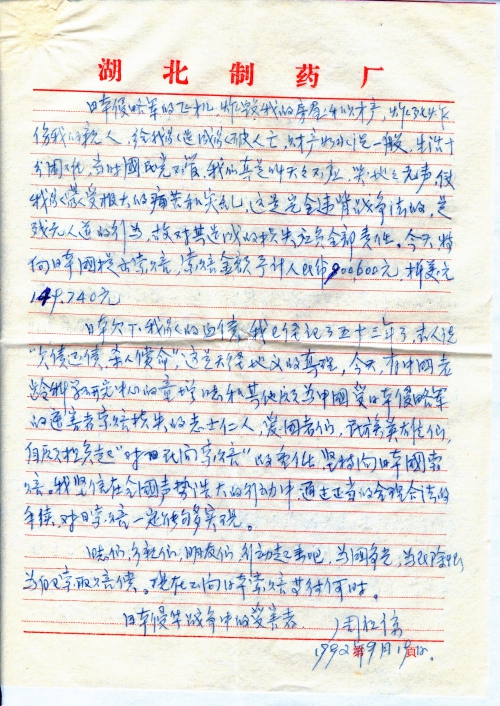 湖北制药厂
日本侵略军的飞机，炸毁我的房屋和财产，炸死炸
伤我的亲人，给我家造成家破人亡，财产如水洗一般，生活十
分困难，当时国民党不管，我们真是叫天天不应，哭地地无声，使
我家蒙受极大的痛苦和灾难，这是完全违背战争法的，是
残无人道的行为，故对其造成的损失应负全部责任。今天特
向日本国提出索赔，索赔金额予计人民币900,600元，折美元
149,740元
日本欠下我家的血债，我已经记了五十三年了，古人说
“欠债还债，杀人偿命”，这是天经地义的真理，今天，有中国老
龄科学研究中心的童增 和其他 为中国受日本侵略军
的迫害者索赔损失的志士仁人，爱国者们，民族英雄们，
自反 担负起“对日民间索赔”的责任，坚持向日本国索
赔。我坚信在全国声势浩大的行动中通过正当的合理合法的
手续，对日索赔一定能够实现。
同志们，乡亲们，朋友们，行动起来吧，为国争光，为民除害，
为 索取赔偿。现在不向日本索赔，等待何时。
日本侵华战争中的受害者
周
1992年9月19日